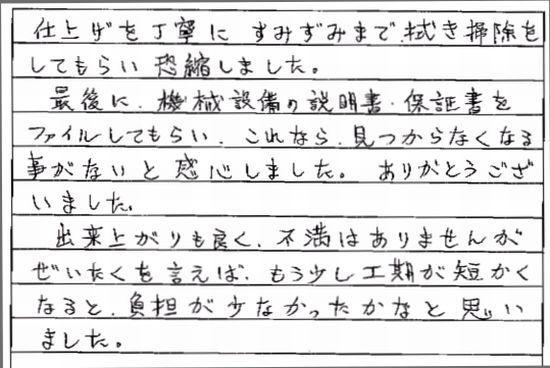 仕上げを丁寧に すみずみまで、拭き掃除を
してもらい 恐縮しました。
最後に、機械設備の説明書・保証書を
ファイルしてもらい、これなら、見つからなくなる
事がないと感心しました。 ありがとうござ
いました。
出来上がりも良く、不満はありませんが
ぜいたくを言えば、もう少し工期が短かく
なると、負担が少なかったかなと思い
ました。